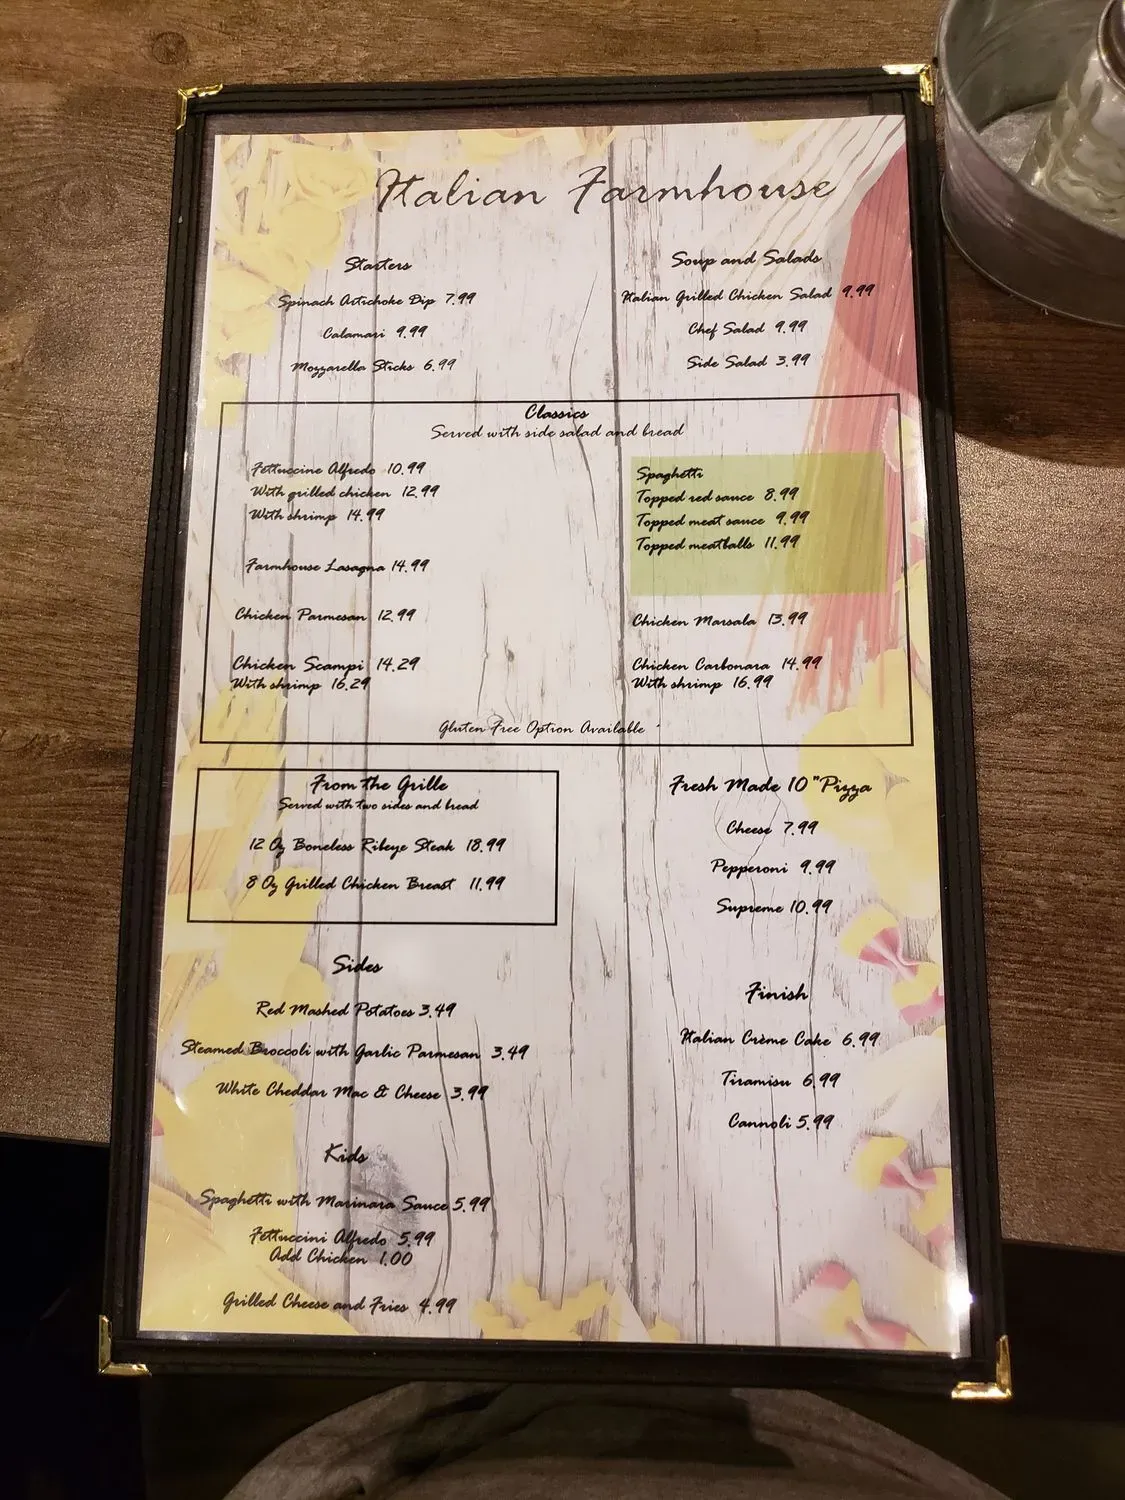 Italian Farmhouse
Starters
Spinach Artichoke Dip 7.99
Calamari 9.99
Mozzarella Sticks 6.99
Soup and Salads
Italian Grilled Chicken Salad 9.99
Chef Salad 9.99
Side Salad 3.99
Classics
Served with side salad and bread
Fettuccine Alfredo 10.99
With grilled chicken 12.99
With shrimp 14.99
Farmhouse Lasagna 14.99
Chicken Parmesan 12.99
Chicken Scampi 14.29
With shrimp 16.29
Spaghetti
Topped red sauce 8.99
Topped meat sauce 9.99
Topped meatballs 11.99
Chicken Marsala 13.99
Chicken Carbonara 14.99
With shrimp 16.99
Gluten Free Option Available
From the Grille
Served with two sides and bread
12 Oz Boneless Ribeye Steak 18.99
8 Oz Grilled Chicken Breast 11.99
Fresh Made 10 "Pizza
Cheese 7.99
Pepperoni 9.99
Supreme 10.99
Sides
Red Mashed Potatoes 3.49
Steamed Broccoli with Garlic Parmesan 3.49
White Cheddar Mac & Cheese 3.99
Finish
Italian Crème Cake 6.99
Tiramisu 6.99
Cannoli 5.99
Kids
Spaghetti with Marinara Sauce 5.99
Fettuccini Alfredo 5.99
Add Chicken 1.00
Grilled Cheese and Fries 4.99